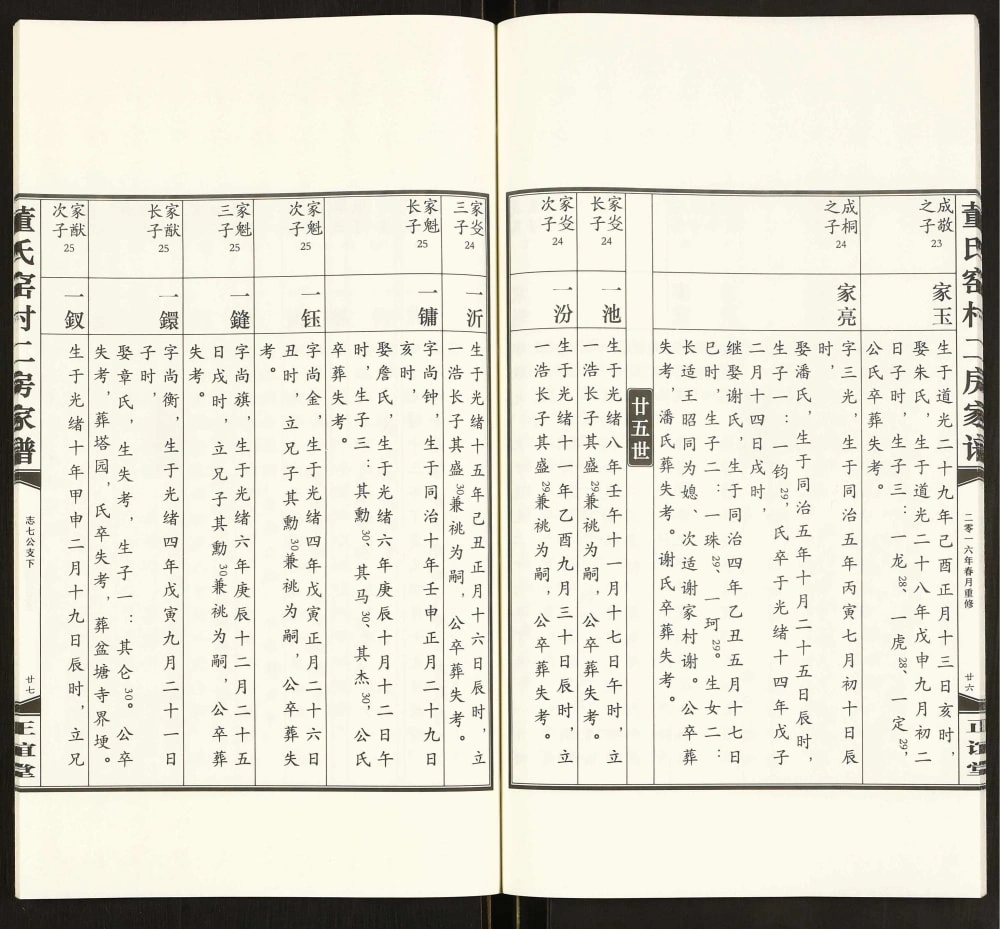 董氏窑村二房家谱
二零一六年春月重修
廿六
正谊堂
成敬
之子23
家玉
生于道光二十九年己酉正月十三日亥时，
娶朱氏，生于道光二十八年戊申九月初二
日子时，生子三：一龙28、一虎28、一定29，
公氏卒葬失考。
成桐
之子24
家亮
字三光，生于同治五年丙寅七月初十日辰
时，
娶潘氏，生于同治五年十月二十五日辰时，
生子一：一钧29，氏卒于光绪十四年戊子
二月十四日戌时，
继娶谢氏，生于同治四年乙丑五月十七日
巳时，生子二：一珠29、一珂29。生女二：
长适王昭同为媳、次适谢家村谢。公卒葬
失考，潘氏葬失考。谢氏卒葬失考。
廿五世
家炎
长子24
一池
生于光绪八年壬午十一月十七日午时，立
一浩长子其盛29兼祧为嗣，公卒葬失考。
家炎
次子24
一汾
生于光绪十一年乙酉九月三十日辰时，立
一浩长子其盛29兼祧为嗣，公卒葬失考。
家炎
三子24
一沂
生于光绪十五年己丑正月十六日辰时，立
一浩长子其盛30兼祧为嗣，公卒葬失考。
家魁
长子25
一镛
字尚钟，生于同治十年壬申正月二十九日
亥时，
娶詹氏，生于光绪六年庚辰十月十二日午
时，生子三：其勳30、其马30、其杰30，公氏
卒葬失考。
家魁
次子25
一钰
字尚金，生于光绪四年戊寅正月二十六日
丑时，立兄子其勳30兼祧为嗣，公卒葬失
考。
家魁
三子25
一鏠
字尚旗，生于光绪六年庚辰十二月二十五
日戌时，立兄子其勳30兼祧为嗣，公卒葬
失考。
家猷
长子25
一鐶
字尚衡，生于光绪四年戊寅九月二十一日
子时，
娶章氏，生失考，生子一：其仑30。公卒
失考，葬塔园，氏卒失考，葬盆塘寺界埂。
家猷
次子25
一钗
生于光绪十年甲申二月十九日辰时，立兄
董氏窑村二房家谱
志七公支下
廿七
正谊堂